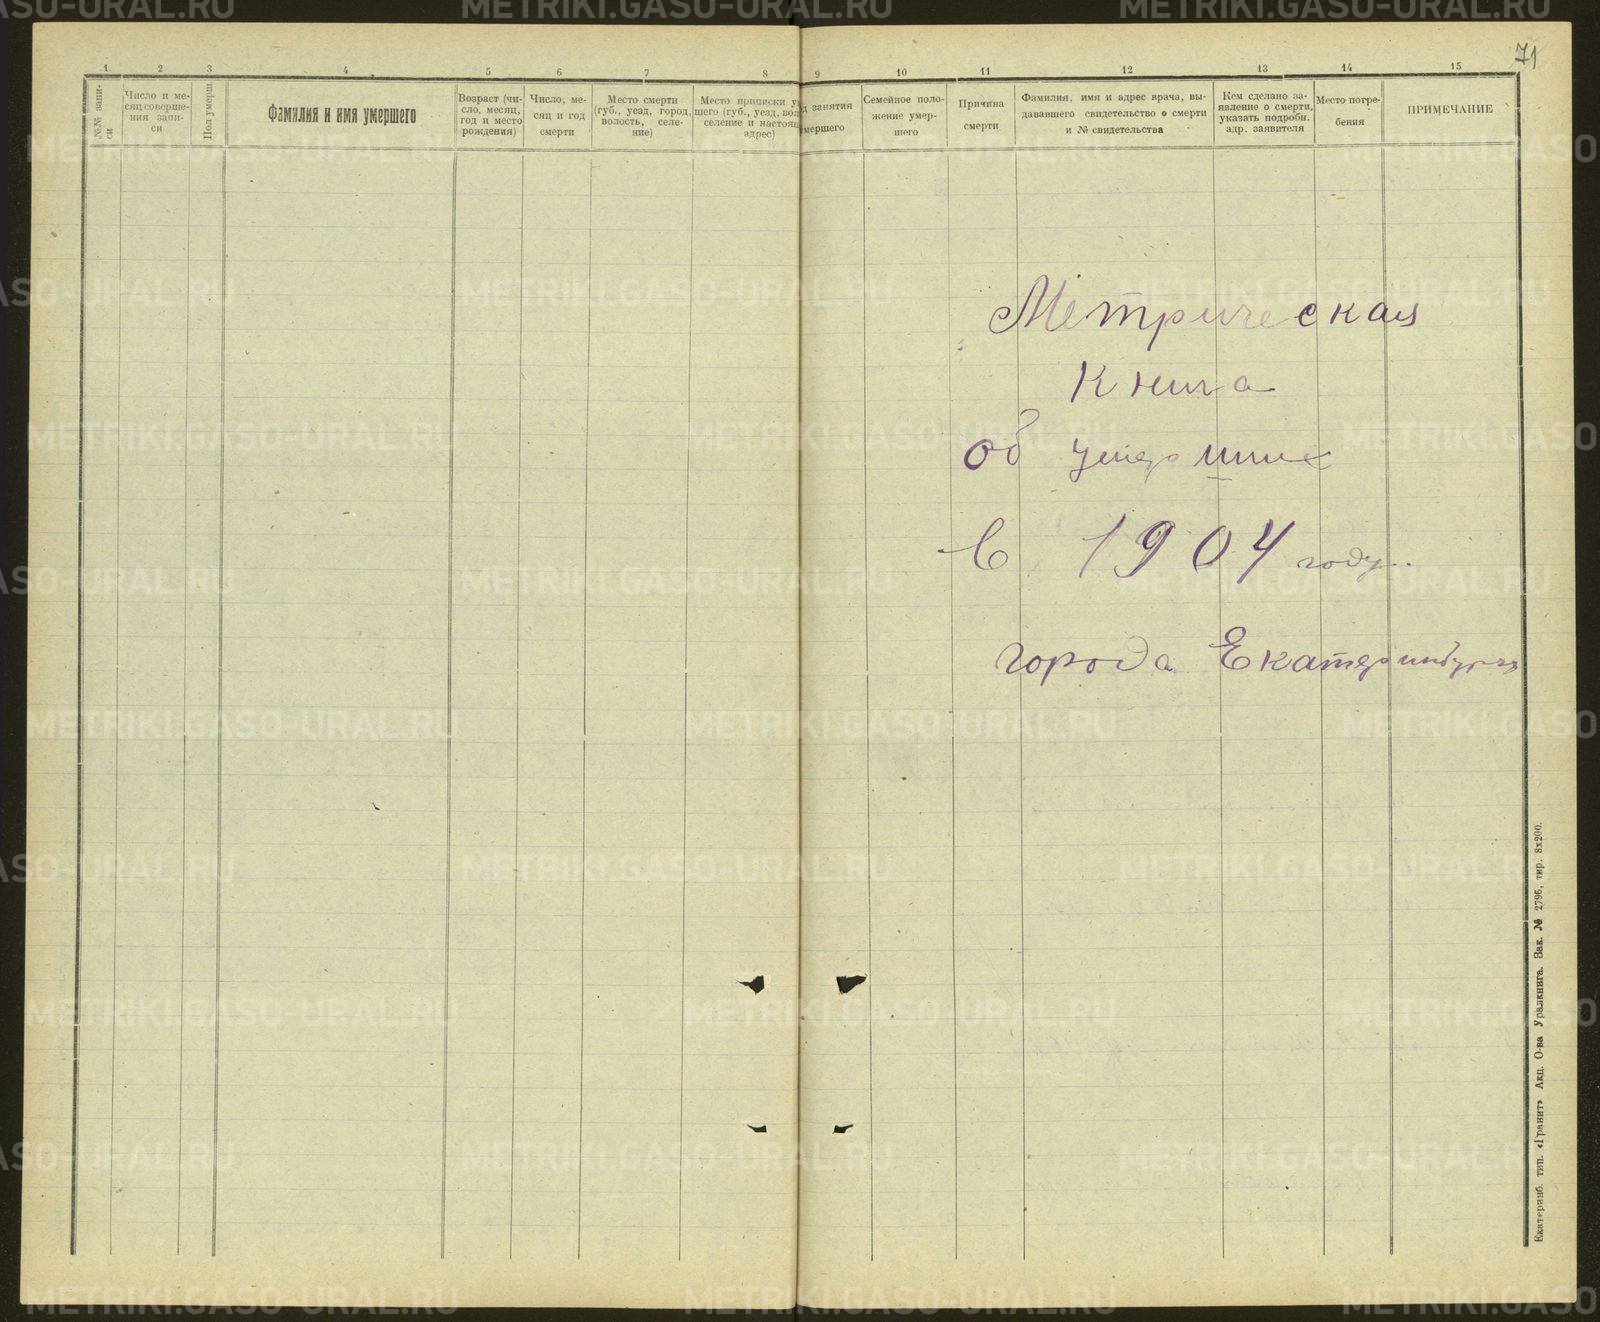 71
1 2 3 4 5 6 7 8 9 10 11 12 13 14 15
№№ запи-
си
Число и ме-
сяц соверше-
ния запи-
си
Пол умерш.
Фамилия и имя умершего
Возраст (чи-
сло, месяц,
год и место
рождения)
Число, ме-
сяц и год
смерти
Место смерти
(губ., уезд, город,
волость, селе-
ние)
Место приписки у
шего (губ., уезд, вол
селение и настоящ
адрес)
д занятия
умершего
Семейное поло-
жение умер-
шего
Причина
смерти
Фамилия, имя и адрес врача, вы-
дававшего свидетельство о смерти
и № свидетельства
Кем сделано за-
явление о смерти,
указать подробн.
адр. заявителя
Место погре-
бения
ПРИМЕЧАНИЕ
Метрическая
Книга
об умерших
в 1904 году.
города Екатеринбурга
Екатеринб. тип. «Гранит» Акц. О-ва Уралкнига. Зак. № 2796, тир. 8х200.
METRIKI.GASO-URAL.RU